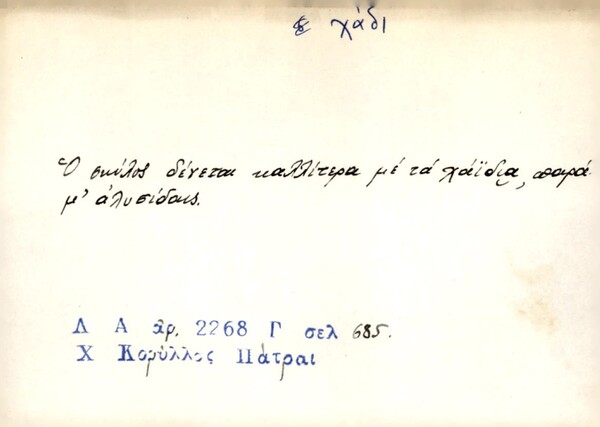 χάδι
Ὁ σκύλος δένεται καλλίτερα μέ τά χάϊδια, παρά
μ' ἁλυσίδαις.
Λ Α ἀρ. 2268 Γ σελ 685.
Χ Κορύλλος Πάτραι